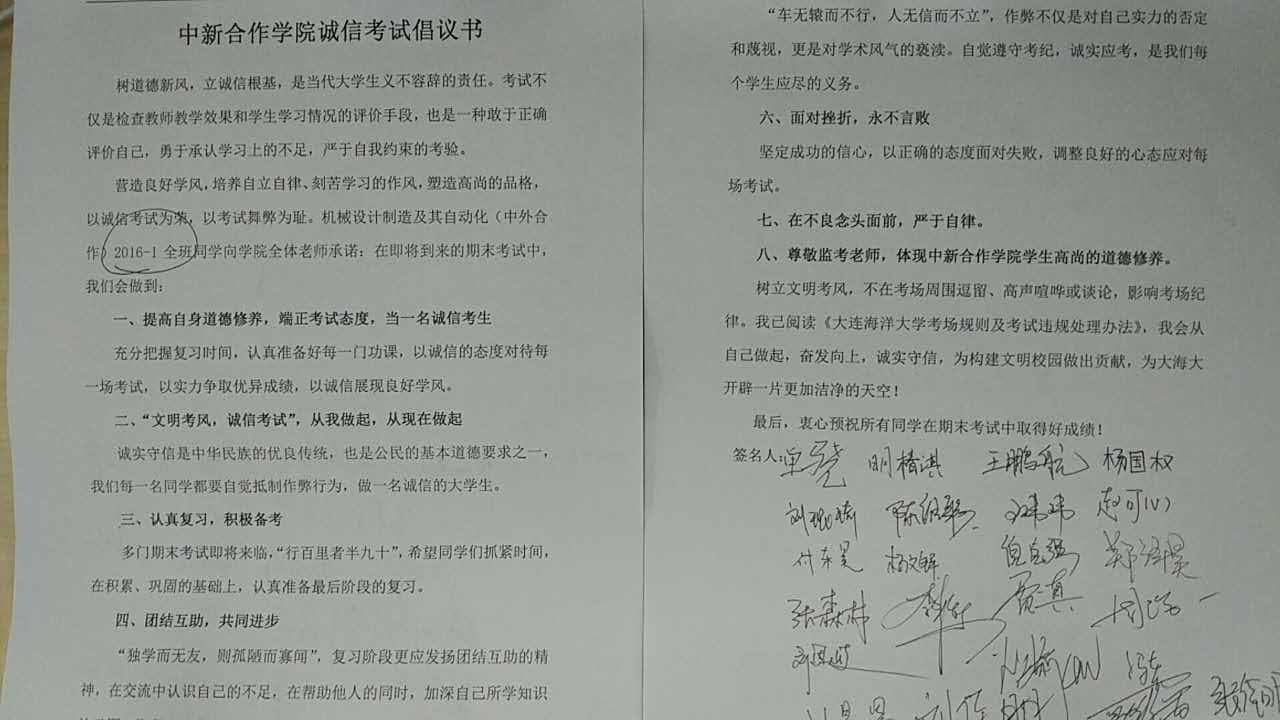 中新合作学院诚信考试倡议书
树道德新风，立诚信根基，是当代大学生义不容辞的责任。考试不
仅是检查教师教学效果和学生学习情况的评价手段，也是一种敢于正确
评价自己，勇于承认学习上的不足，严于自我约束的考验。
营造良好学风，培养自立自律、刻苦学习的作风，塑造高尚的品格，
以诚信考试为荣，以考试舞弊为耻。机械设计制造及其自动化（中外合
作）2016-1 全班同学向学院全体老师承诺：在即将到来的期末考试中，
我们会做到：
一、提高自身道德修养，端正考试态度，当一名诚信考生
充分把握复习时间，认真准备好每一门功课，以诚信的态度对待每
一场考试，以实力争取优异成绩，以诚信展现良好学风。
二、“文明考风，诚信考试”，从我做起，从现在做起
诚实守信是中华民族的优良传统，也是公民的基本道德要求之一，
我们每一名同学都要自觉抵制作弊行为，做一名诚信的大学生。
三、认真复习，积极备考
多门期末考试即将来临，“行百里者半九十”，希望同学们抓紧时间，
在积累、巩固的基础上，认真准备最后阶段的复习。
四、团结互助，共同进步
“独学而无友，则孤陋而寡闻”，复习阶段更应发扬团结互助的精
神，在交流中认识自己的不足，在帮助他人的同时，加深自己所学知识
“车无辕而不行，人无信而不立”，作弊不仅是对自己实力的否定
和蔑视，更是对学术风气的亵渎。自觉遵守考纪，诚实应考，是我们每
个学生应尽的义务。
六、面对挫折，永不言败
坚定成功的信心，以正确的态度面对失败，调整良好的心态应对每
场考试。
七、在不良念头面前，严于自律。
八、尊敬监考老师，体现中新合作学院学生高尚的道德修养。
树立文明考风，不在考场周围逗留、高声喧哗或谈论，影响考场纪
律。我已阅读《大连海洋大学考场规则及考试违规处理办法》，我会从
自己做起，奋发向上，诚实守信，为构建文明校园做出贡献，为大海大
开辟一片更加洁净的天空！
最后，衷心预祝所有同学在期末考试中取得好成绩！
签名人： 王鹏航 杨国权
张森林 贾真